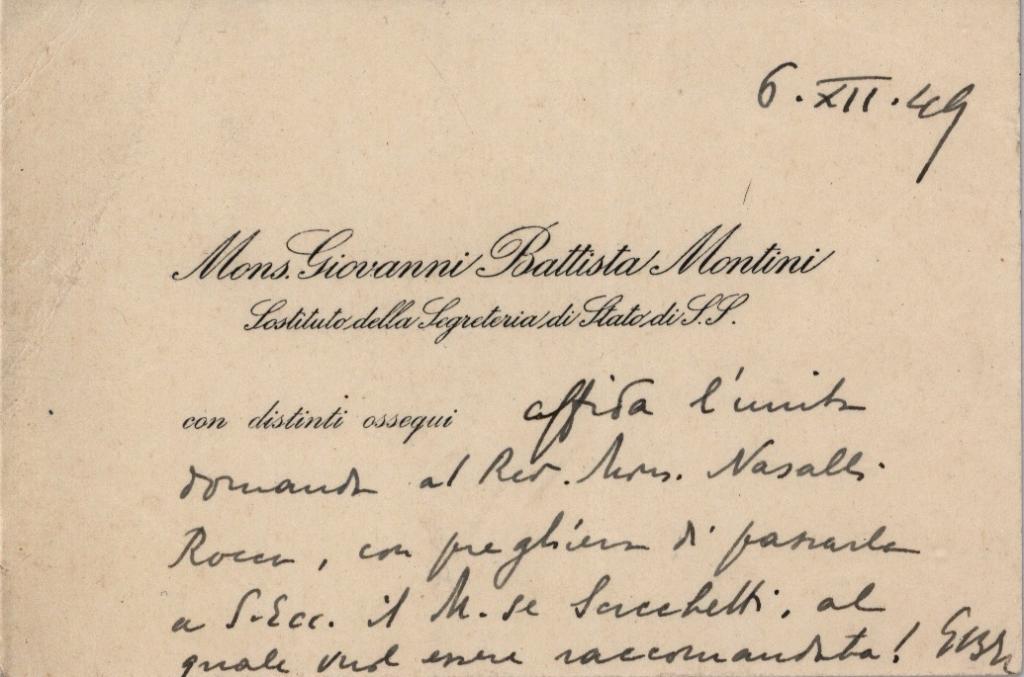 6.XII.49
Mons. Giovanni Battista Montini
Sostituto della Segreteria di Stato di S.S.
con distinti ossequi affida l'unita
domanda al Rev. Mons. Nasalli
Rocca, con preghiera di passarla
a S. Ecc. il M.se Sacchetti, al
quale vuol essere raccomandata! GBM